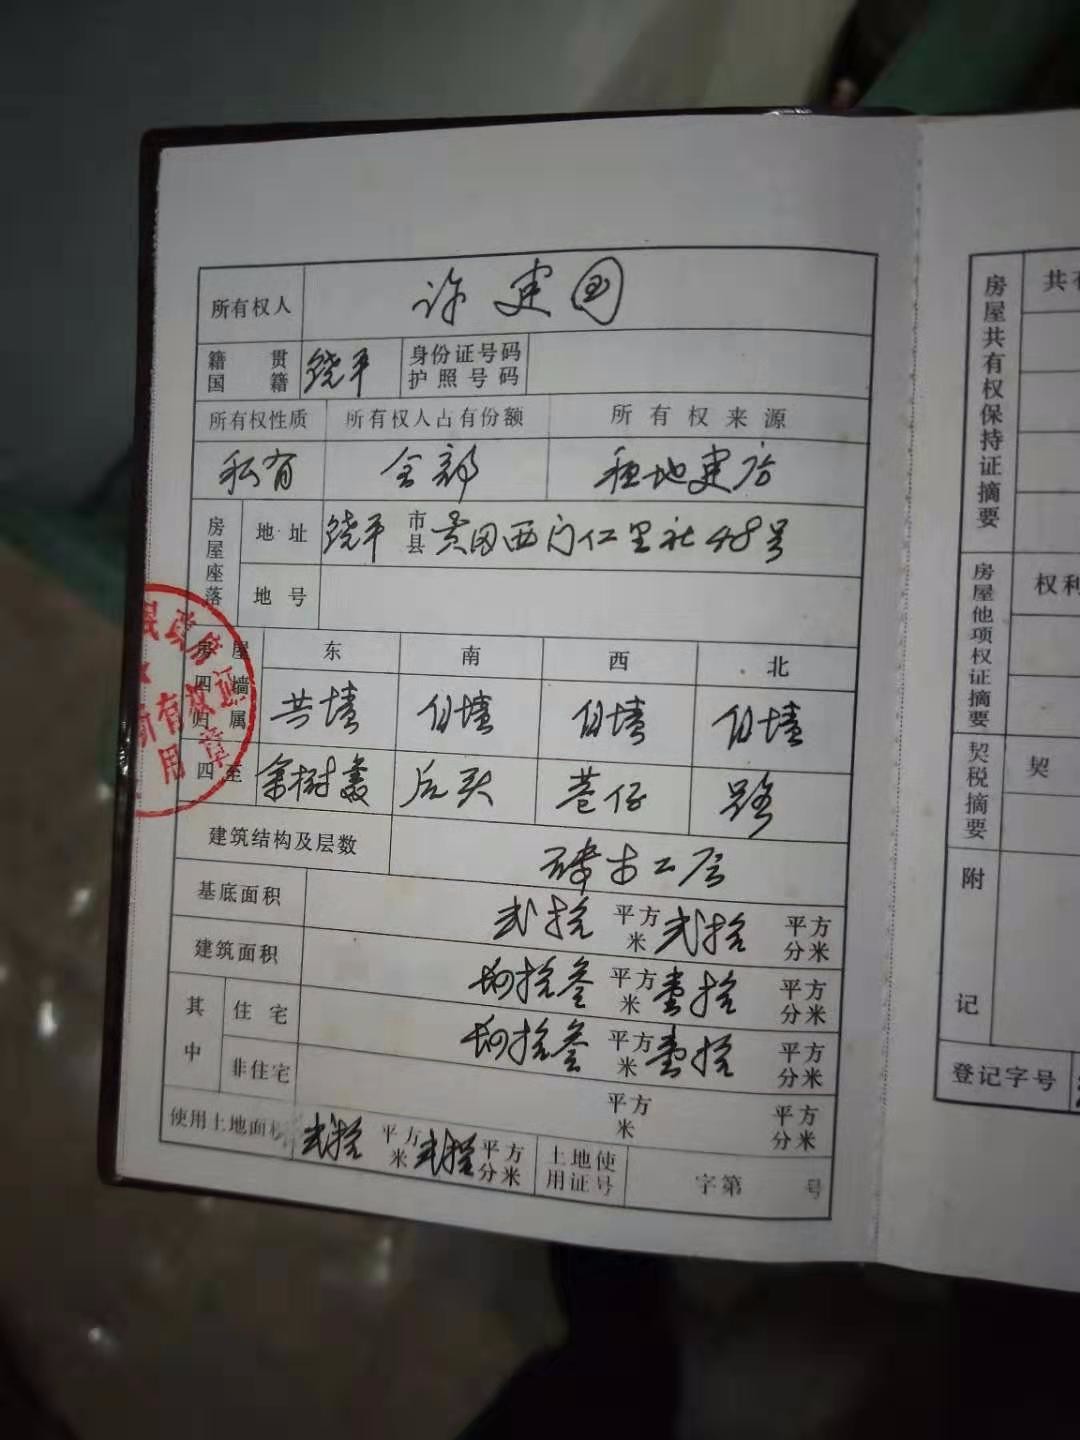 所有权人 许建国
籍贯 国籍 饶平 身份证号码 护照号码
所有权性质 所有权人占有份额 所有权来源
私有 全部 租地建后
房屋座落 地址 饶平 市县 黄冈西门仁里社48号
地号
房屋四墙归属 东 南 西 北
共墙 自墙 自墙 自墙
四至 余树 后头 巷仔 路
建筑结构及层数 砖木二层
基底面积 贰拾 平方米 贰拾 平方分米
建筑面积 肆拾叁 平方米 壹拾 平方分米
其中 住宅 肆拾叁 平方米 壹拾 平方分米
非住宅 平方米 平方分米
使用土地面积 贰拾 平方米 贰拾 平方分米 土地使用证号 字第 号
民政府
所有权证
用章
房屋共有权保持证摘要 共有
房屋他项权证摘要 权利
契税摘要 契
附记
登记字号